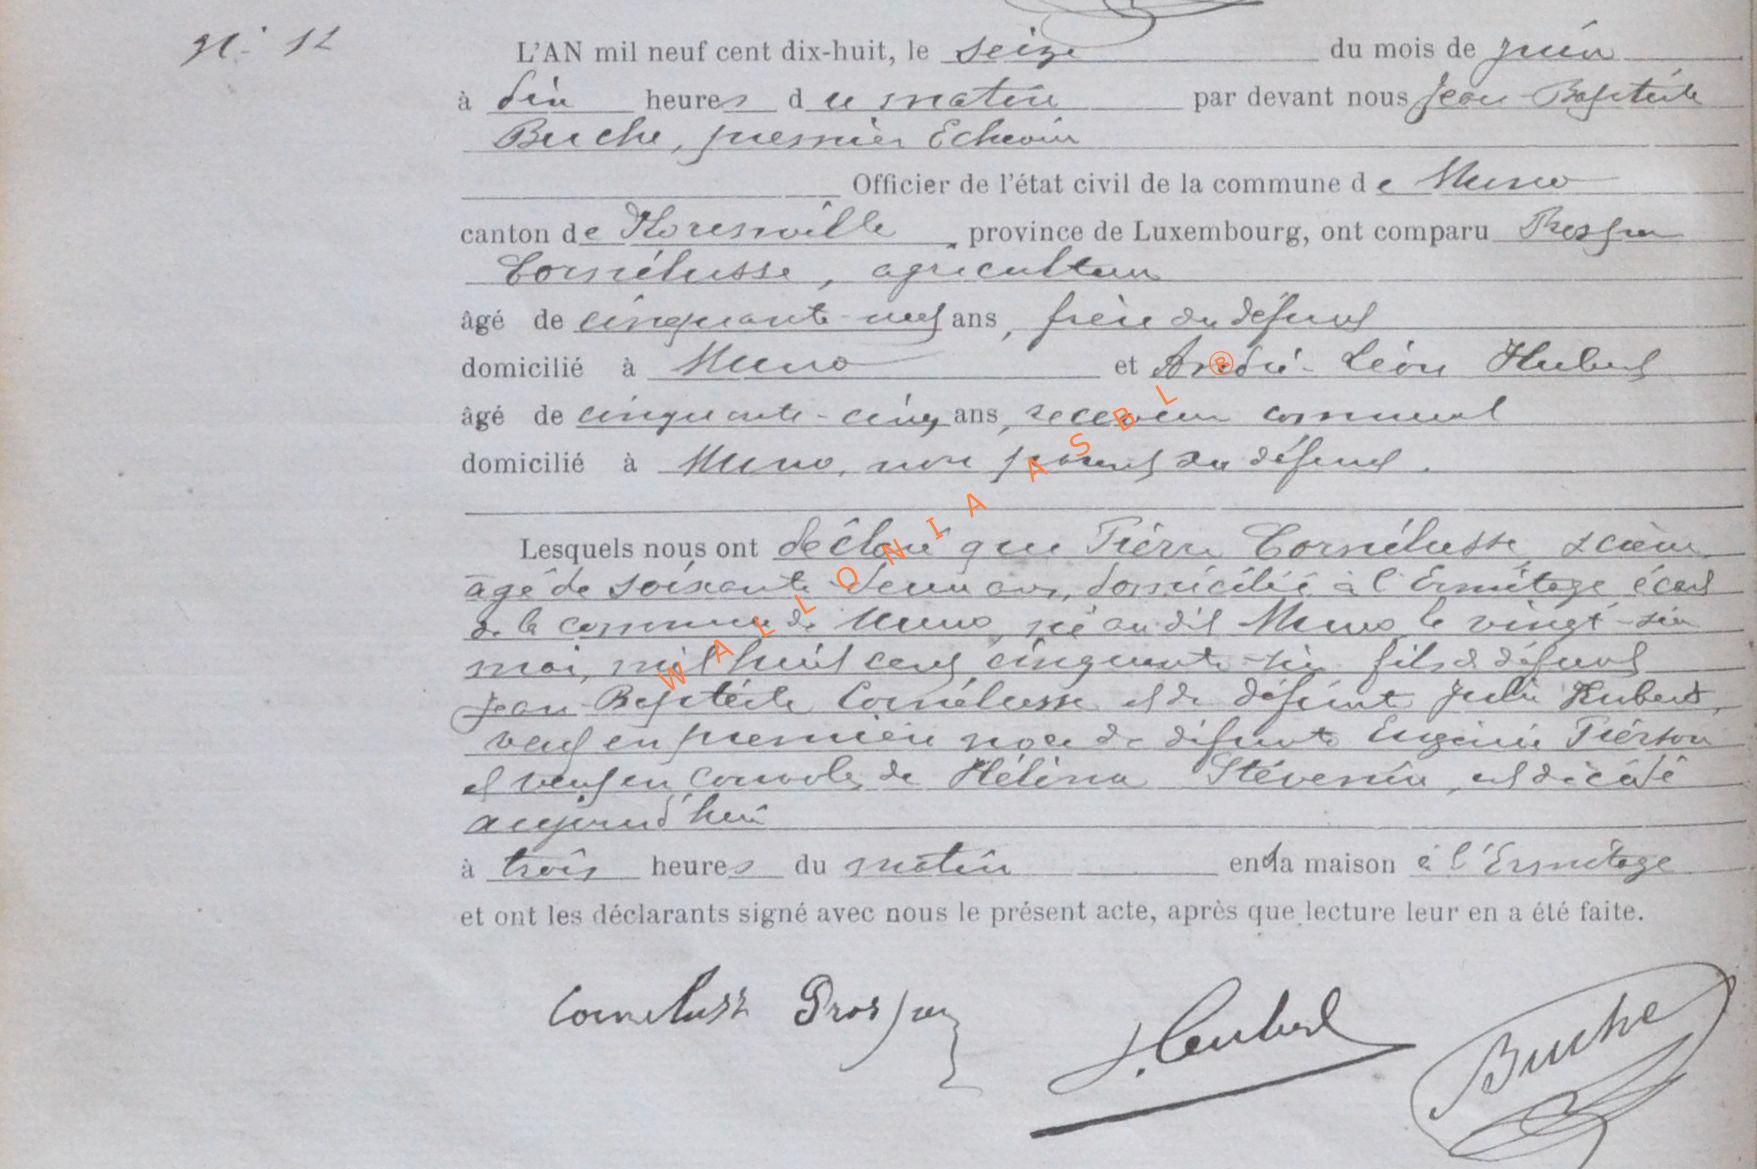 N° 12
L'AN mil neuf cent dix-huit, le seize du mois de juin
à dix heures du matin par devant nous Jean-Baptiste
Buche, premier Echevin
Officier de l'état civil de la commune de Muno
canton de Florenville, province de Luxembourg, ont comparu Prosper
Cornélusse, agriculteur
âgé de cinquante-neuf ans, frère du défunt
domicilié à Muno et André-Léon Hubert
âgé de cinquante-cinq ans, receveur communal
domicilié à Muno, non parent du défunt.
Lesquels nous ont déclaré que Pierre Cornélusse, scieur
âgé de soixante-deux ans, domicilié à l'Ermitage écart
de la commune de Muno, né au dit Muno le vingt-six
mai, mil huit cent cinquante-six fils de défunt
Jean-Baptiste Cornélusse et de défunte Julie Hubert,
veuf en premières noces de défunte Eugénie Pierson
et veuf en de Hélèna Stévenin, est décédé
aujourd'hui
à trois heures du matin en la maison à l'Ermitage
et ont les déclarants signé avec nous le présent acte, après que lecture leur en a été faite.
Cornelusse Prosper
Hubert
Buche
WALLONIA ASBL ®